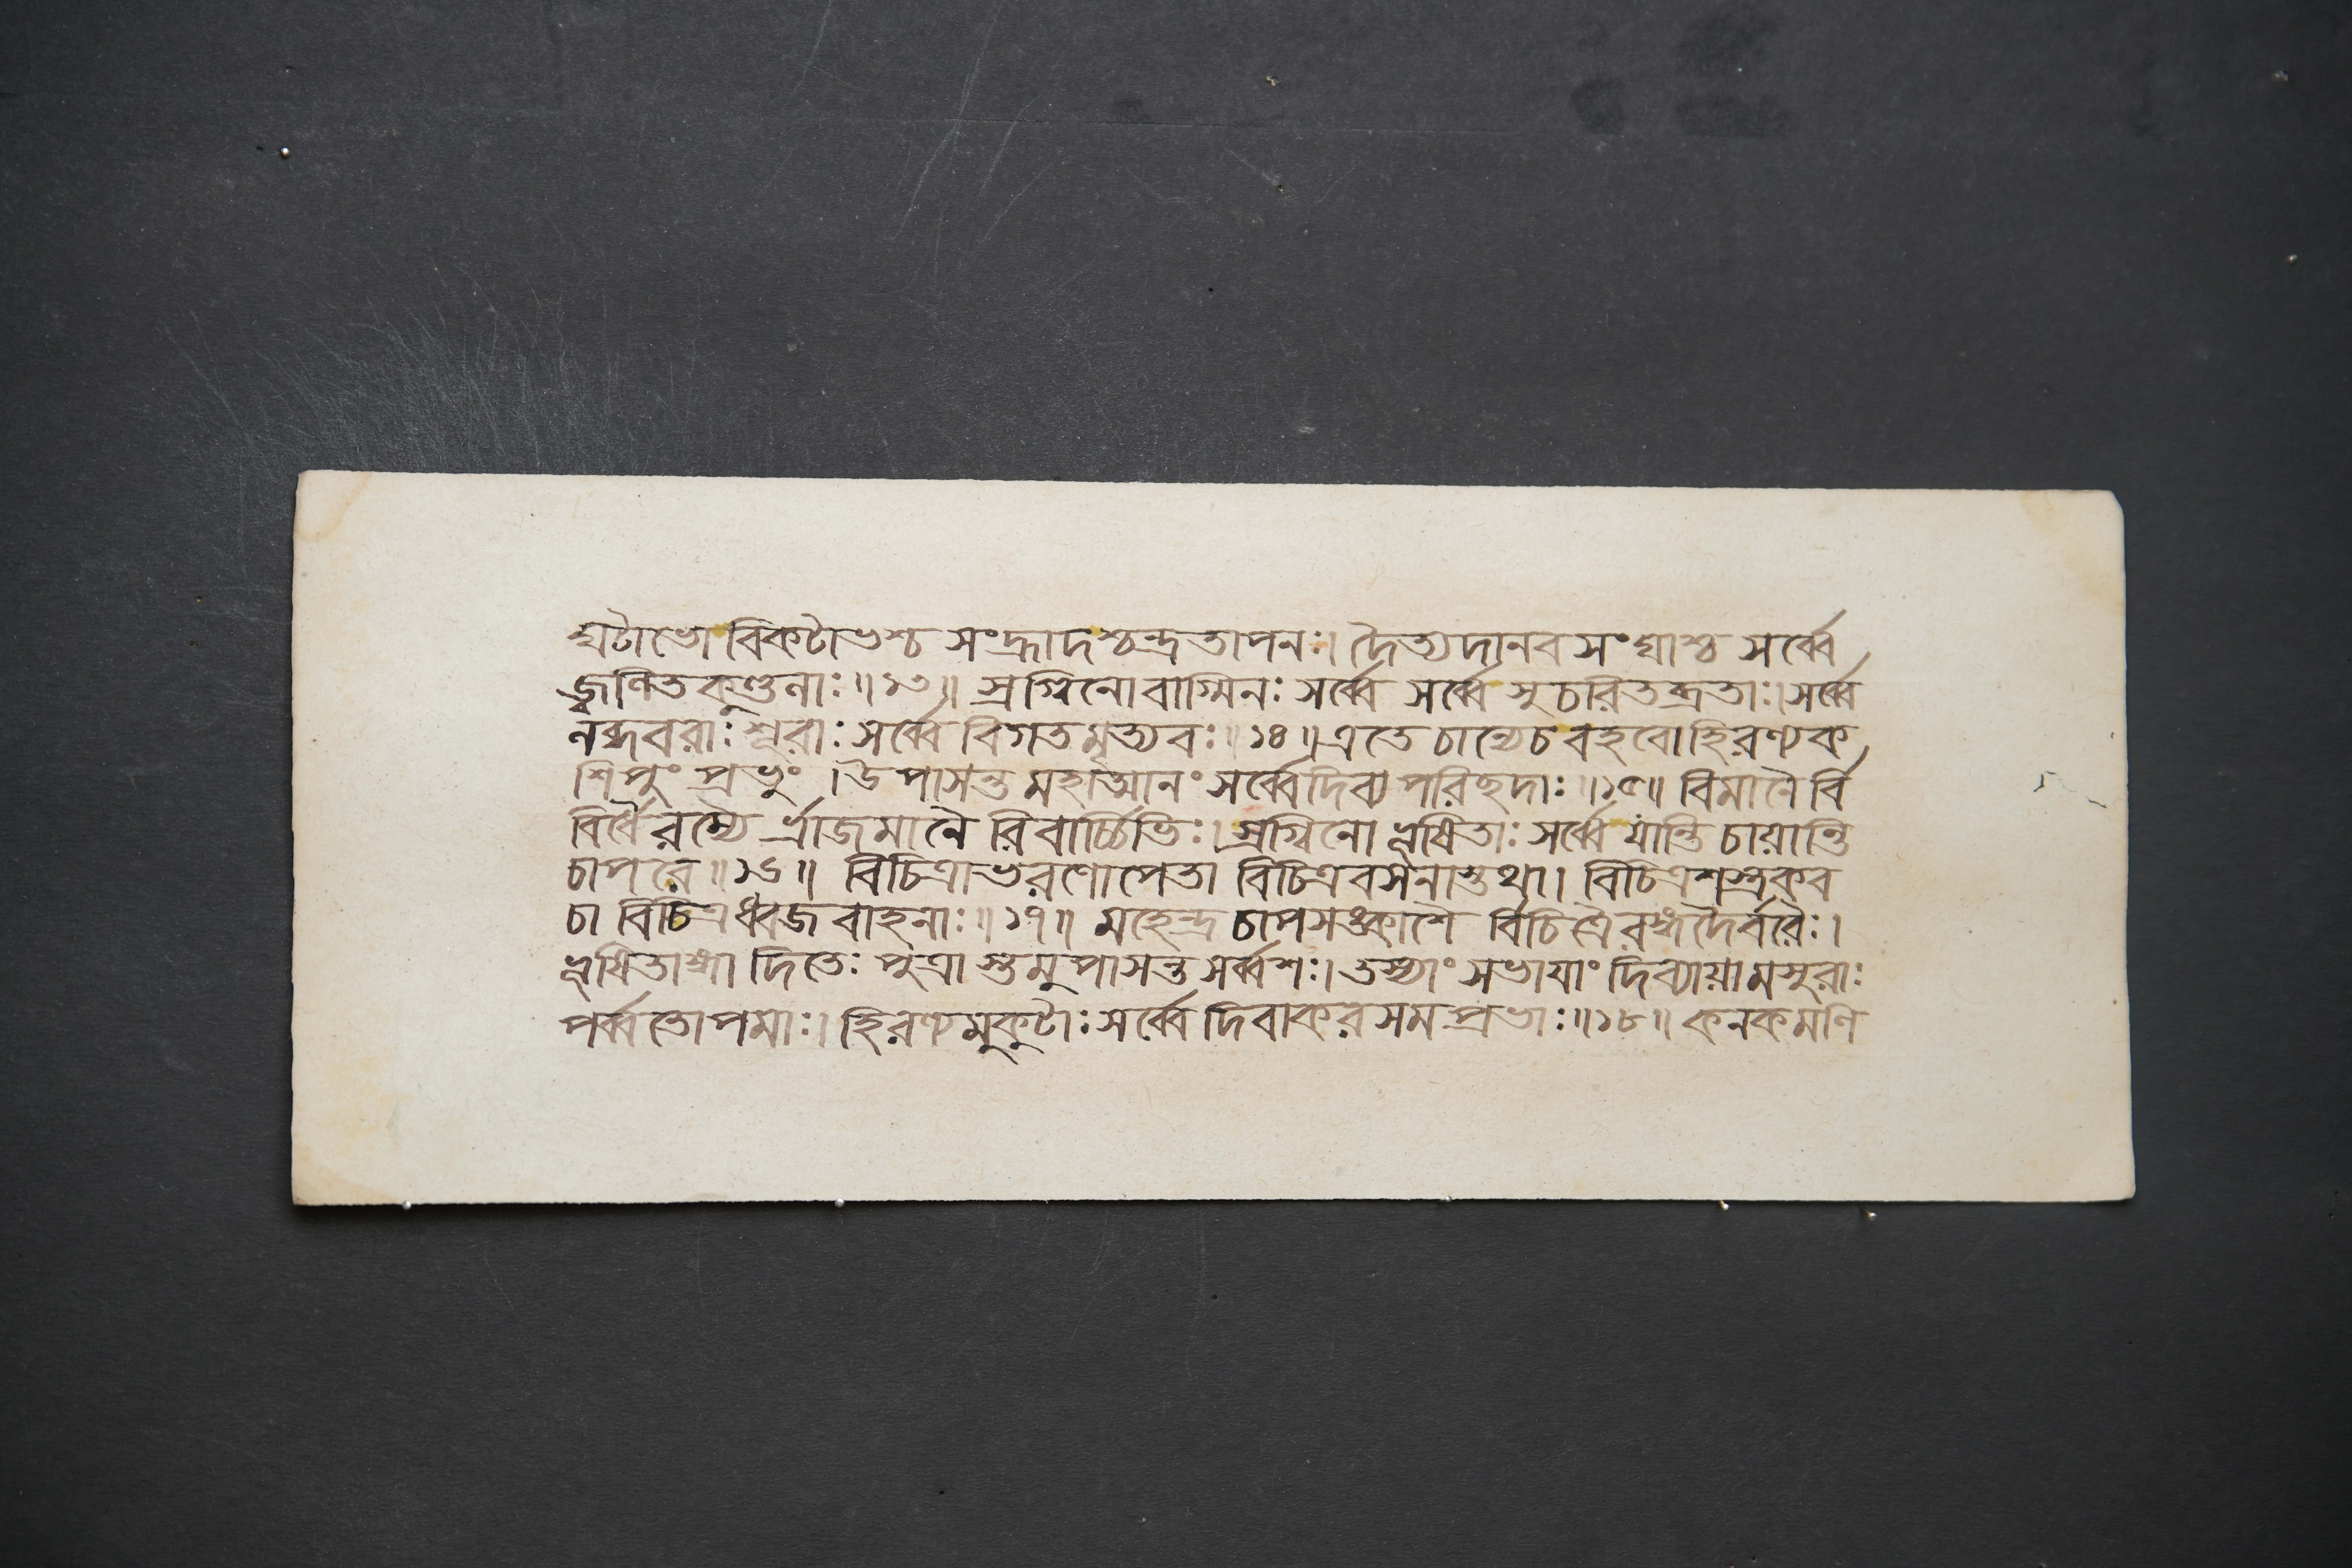 ঘটাভো বিকটাভশ্চ সংহ্রাদশ্চন্দ্রতাপনঃ। দৈত্যদানবসংঘাশ্চ সর্ব্বে
জ্বলিতকুণ্ডলাঃ॥১৩॥ স্রগ্বিনো বাগ্মিনঃ সর্ব্বে সর্ব্বে সুচরিতব্রতাঃ। সর্ব্বে
লব্ধবরাঃ শূরাঃ সর্ব্বে বিগতমৃত্যবঃ॥১৪॥ এতে চান্যে চ বহবো হিরণ্যক
শিপুং প্রভুং। উপাসন্ত মহাত্মানং সর্ব্বে দিব্যপরিছদাঃ॥১৫॥ বিমানৈ র্বি
বিধৈ রম্যৈ র্ভ্রাজমানৈ রিবার্চ্চিভিঃ। স্রগ্বিনো ভূষিতাঃ সর্ব্বে যান্তি চায়ান্তি
চাপরে॥১৬॥ বিচিত্রাভরণোপেতা বিচিত্রবসনাস্তথা। বিচিত্রশস্ত্রকব
চা বিচিত্রধ্বজবাহনাঃ॥১৭॥ মহেন্দ্রচাপসঙ্কাশৈ র্বিচিত্রৈরঙ্গদৈর্বরৈঃ।
ভূষিতাঙ্গা দিতেঃ পুত্রা স্তমুপাসন্ত সর্ব্বশঃ। তস্যাং সভাযাং দিব্যায়ামসুরাঃ
পর্ব্বতোপমাঃ। হিরণ্যমুকুটাঃ সর্ব্বে দিবাকরসমপ্রভাঃ॥১৮॥ কনকমণি